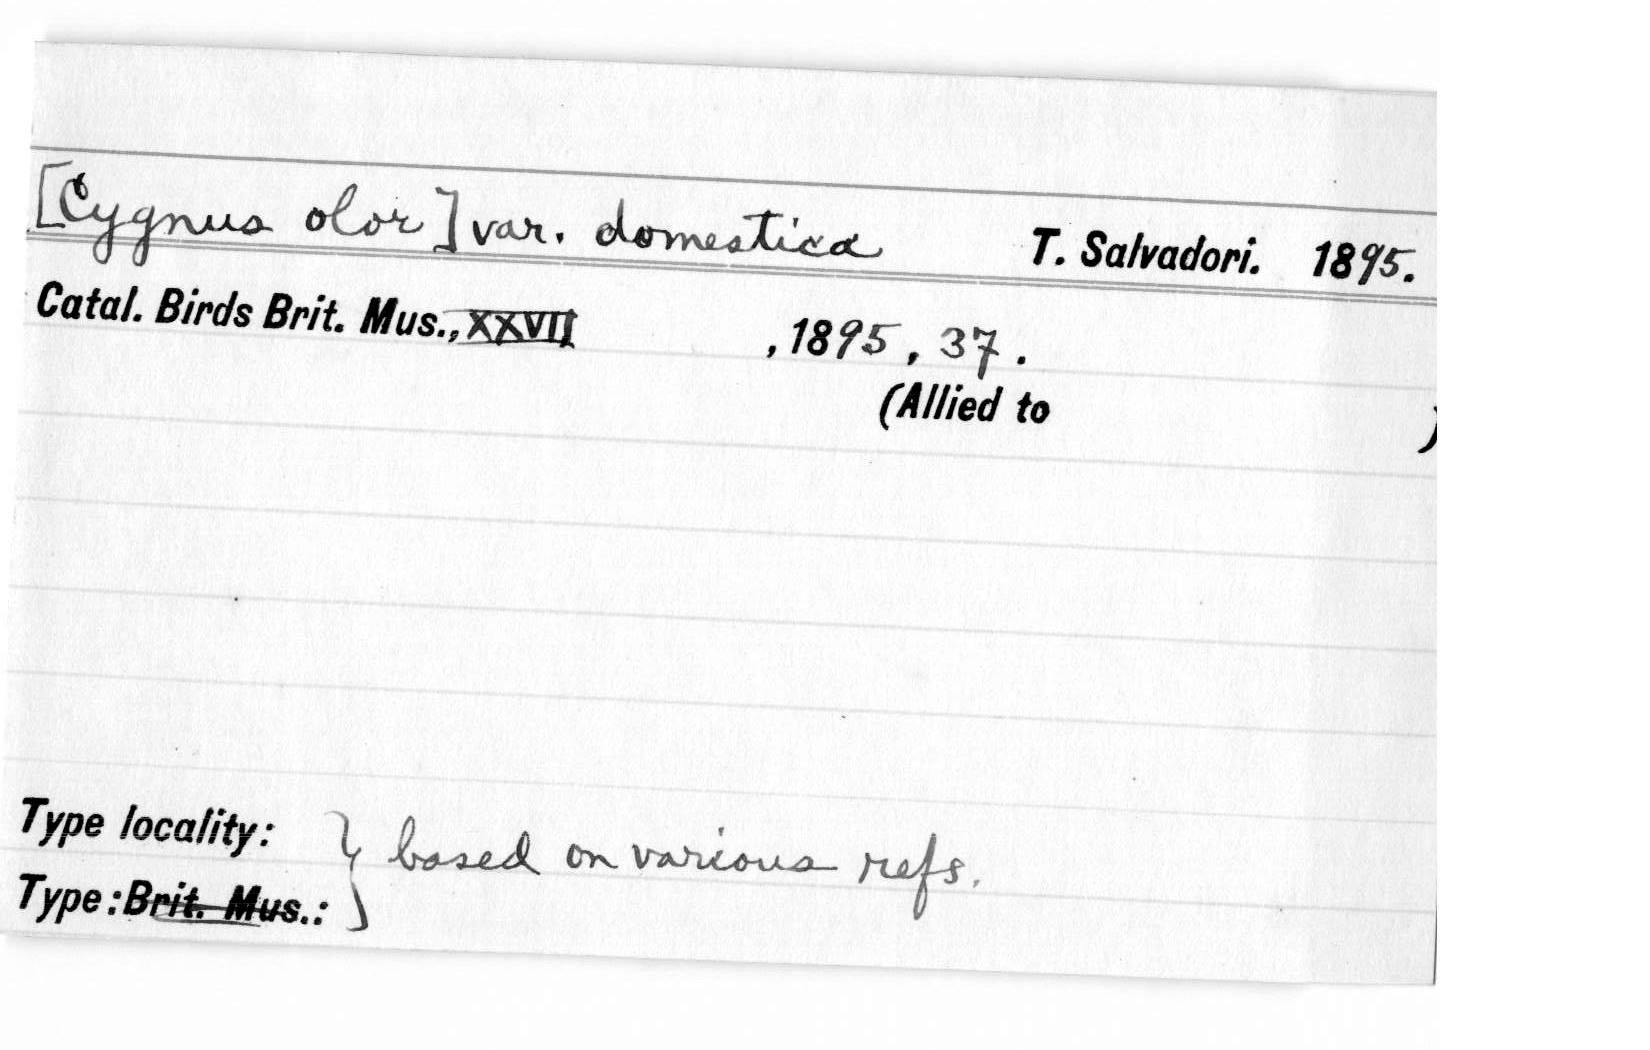 [Cygnus olor] var. domestica T. Salvadori. 1895.
Catal. Birds Brit. Mus., XXVII , 1895, 37.
(Allied to )
Type locality: } based on various refs.
Type: Brit. Mus.: